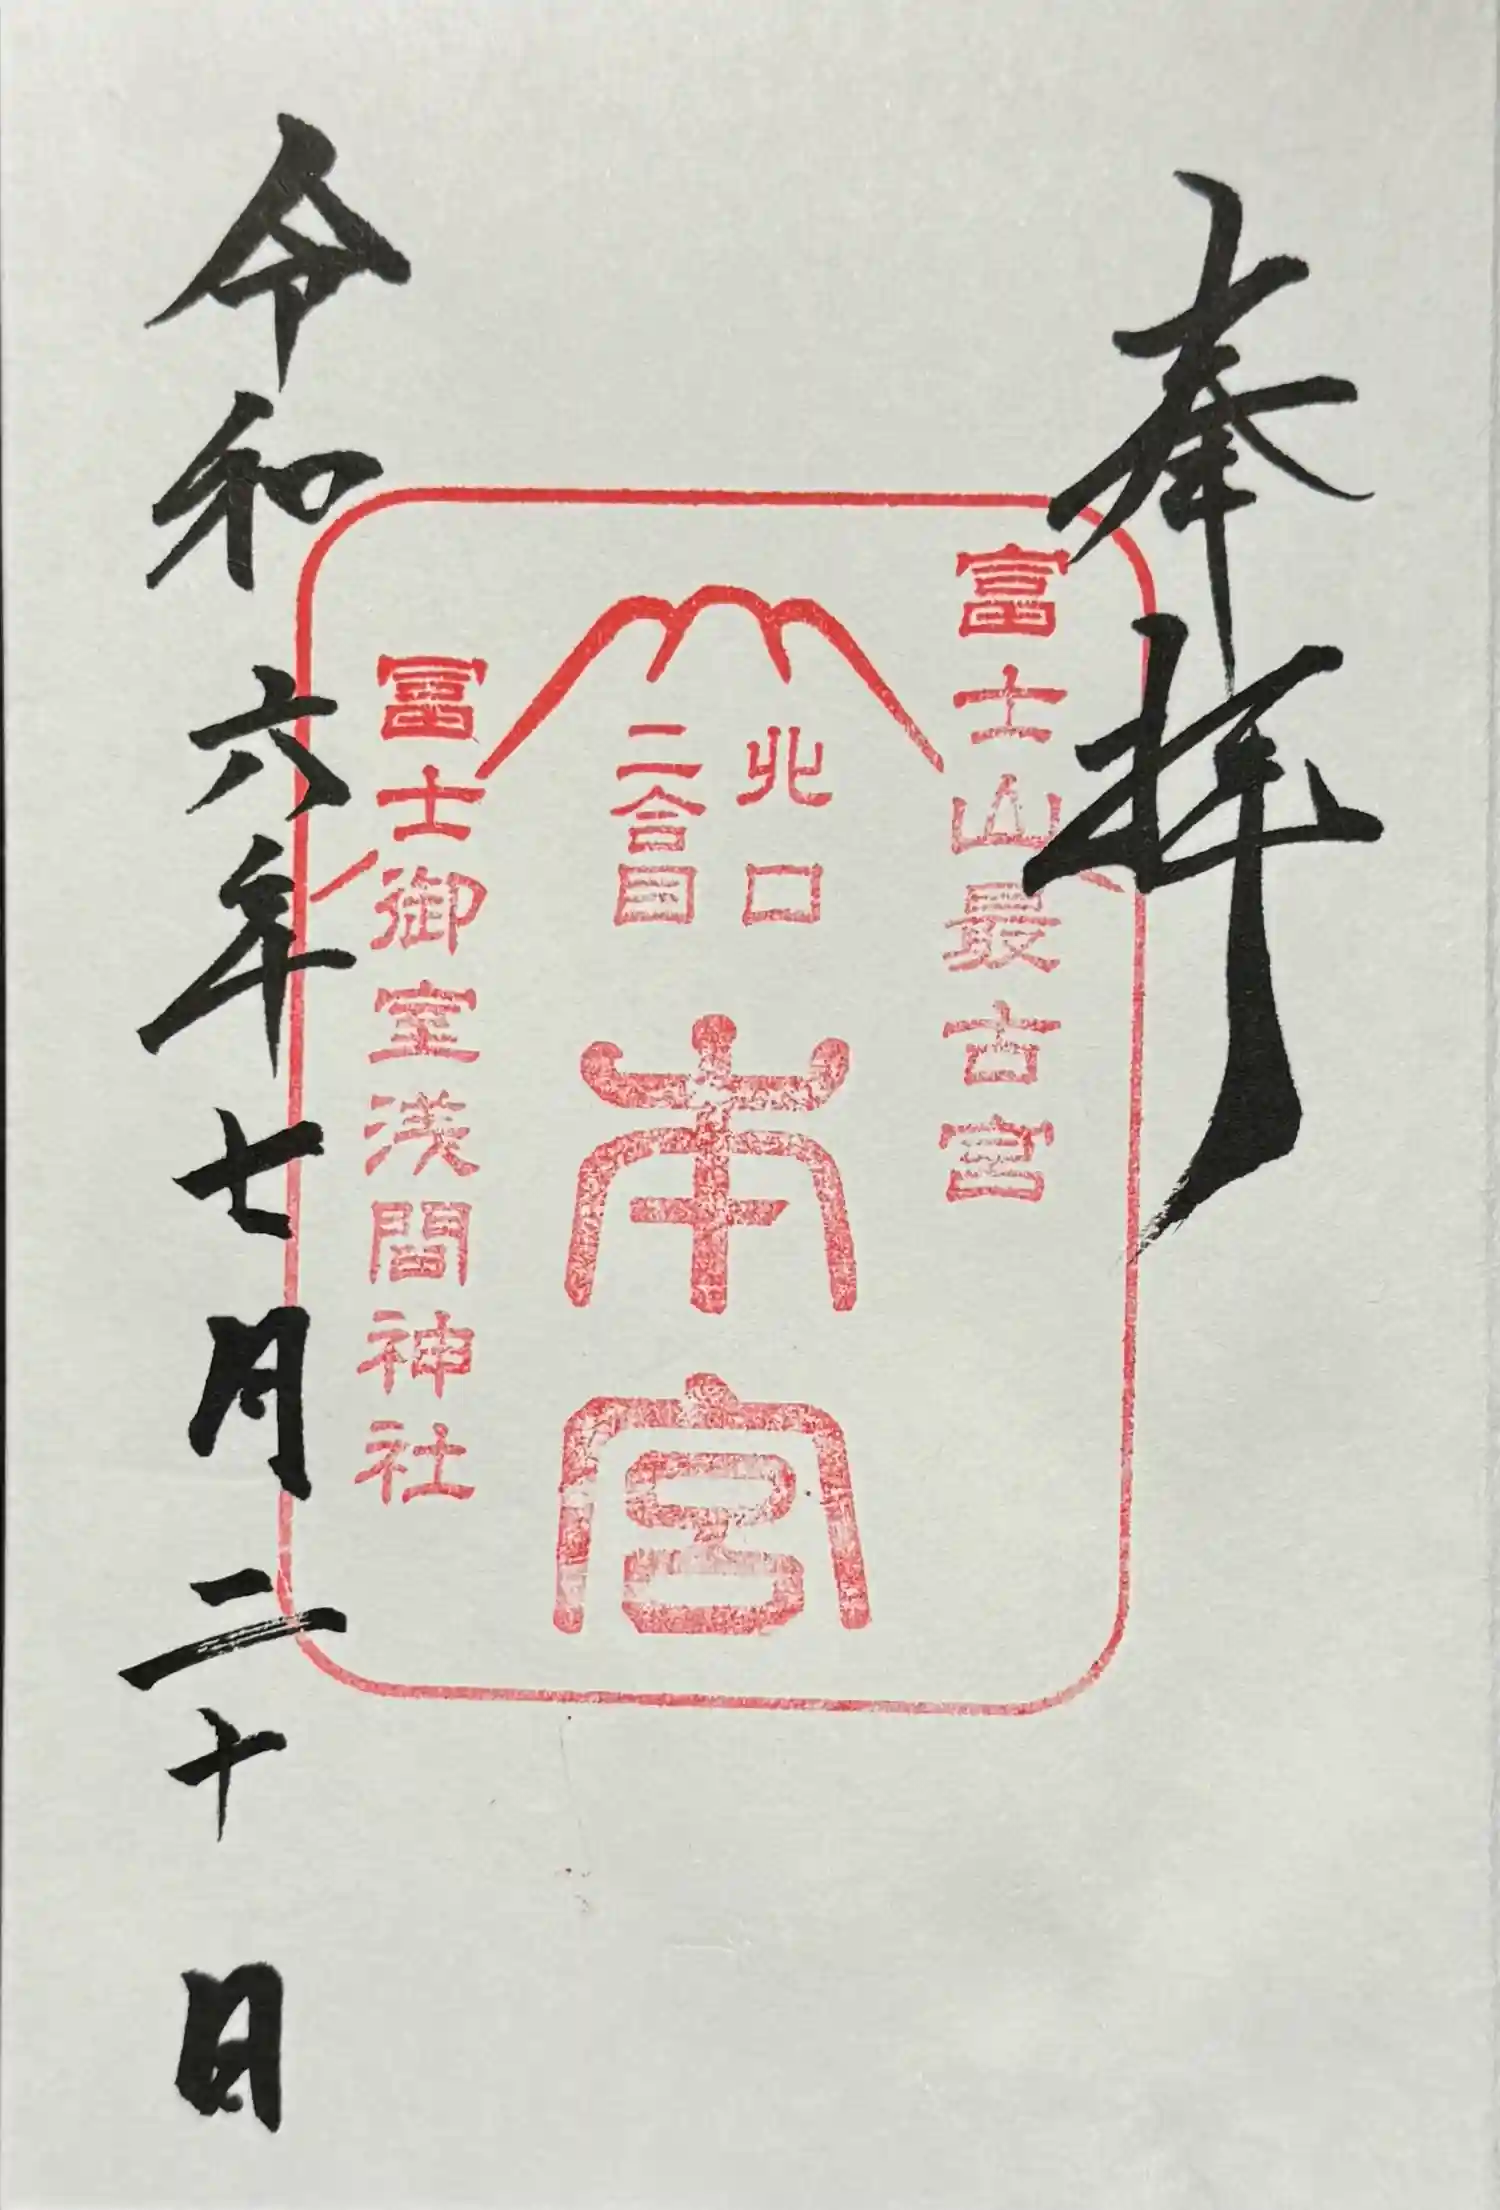 奉拝
富士山最古宮
北口
二合目
本宮
冨士御室浅間神社
令和六年七月二十日